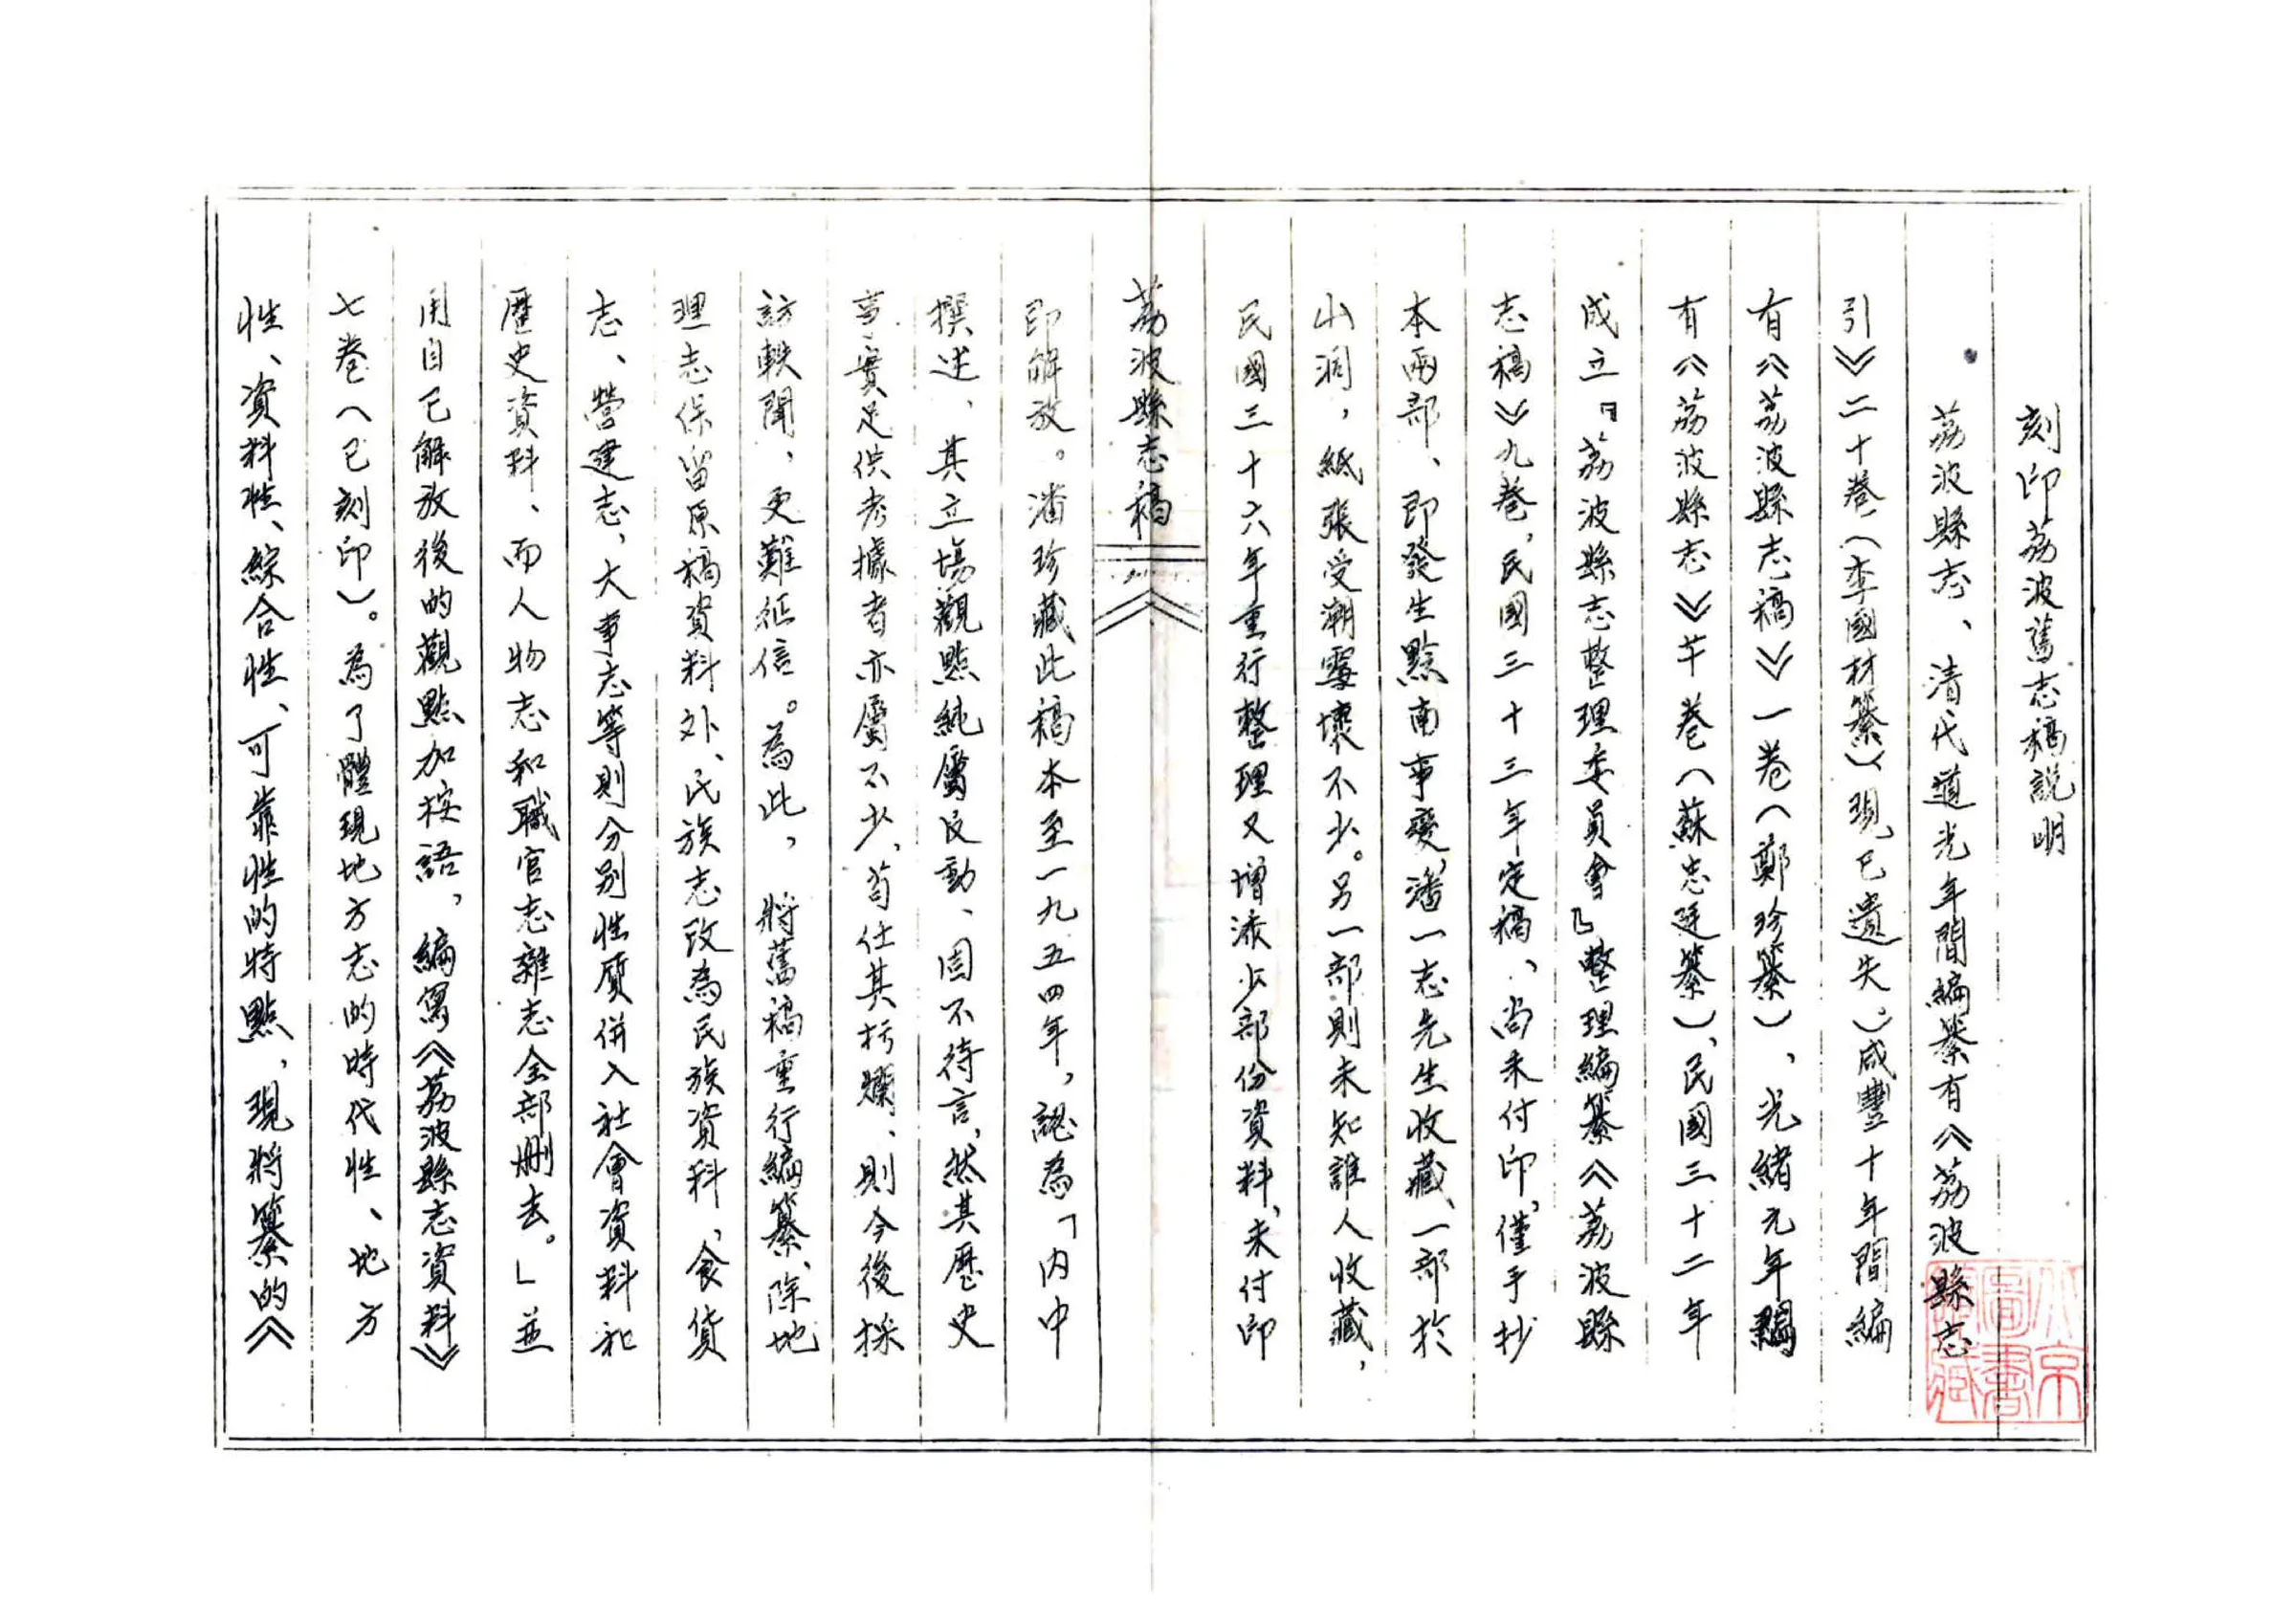 刻印荔波舊志稿説明
荔波縣志、清代道光年間編纂有《荔波縣志
引》二十卷（李國材纂）現已遺失。）咸豐十年間編
有《荔波縣志稿》一卷（鄭珍纂），光緒元年編
有《荔波縣志》卷（蘇忠廷纂）、民國三十二年
成立「荔波縣志整理委員會」整理編纂《荔波縣
志稿》九卷，民國三十三年定稿、尚未付印，僅手抄
本兩部、即發生黔南事變，潘一志先生收藏、一部於
山洞，紙張受潮霉壞不少。另一部則未知誰人收藏，
民國三十六年重行整理又增添少部份資料，未付印
荔波縣志稿
即解放。潘珍藏此稿本至一九五四年，認為「内中
撰述、其立場觀點純屬反動、固不待言，然其歷史
事實足供考據者亦屬不少，苟任其朽爛、則今後採
訪軼聞、更難征信。為此，將舊稿重行編纂、除地
理志保留原稿資料外、民族志改為民族資料、食貨
志、營建志，大事志等則分别性质併入社會資料和
歷史資料、而人物志和職官志雜志全部删去。」並
用自己解放後的觀點加按語，編寫《荔波縣志資料》
七卷（已刻印）。為了體現地方志的時代性、地方
性、資料性、綜合性、可靠性的特點，現將纂的《